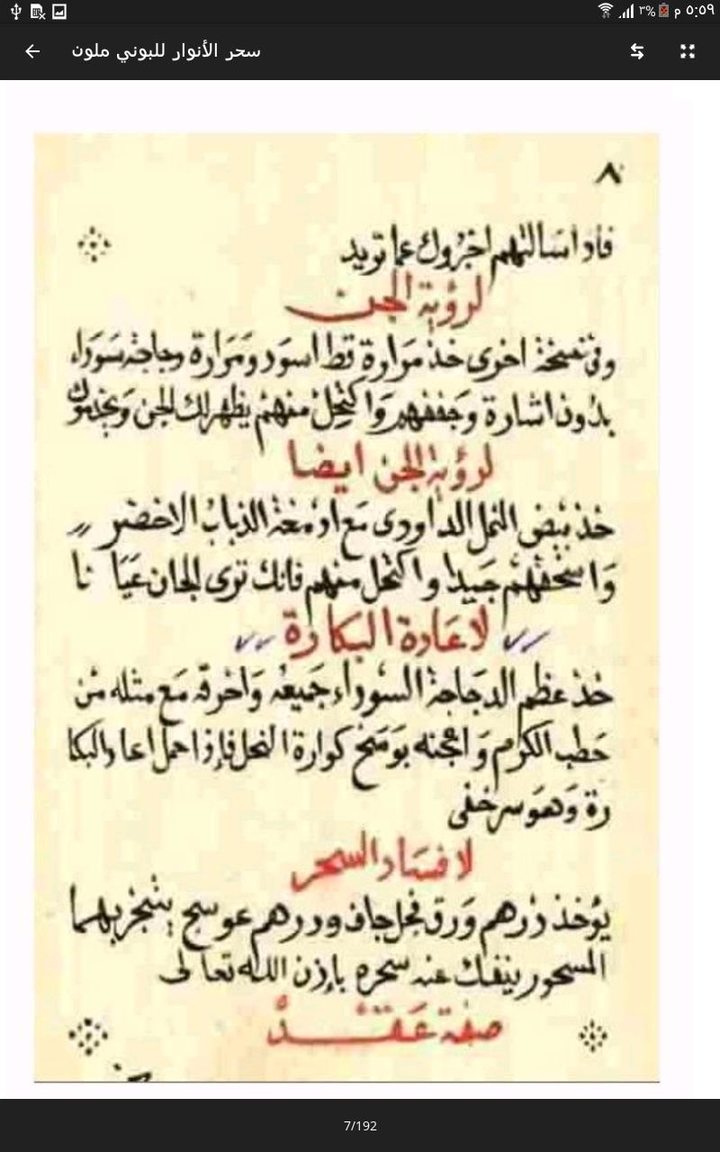 ٥:٥٩ م ٣%
سحر الأنوار للبوني ملون
٨
فاذا سالتهم اخبروك عما تريد
لرؤية الجن
وفى نسخة اخرى خذ مرارة قط اسود ومرارة دجاجة سوداء
بدون اشارة وجففهم واكتحل منهم يظهر لك الجن ويخدموك
لرؤية الجن ايضا
خذ بيض النمل الداودى مع ادمغة الذباب الاخضر
واسحقهم جيدا واكتحل منهم فانك ترى الجان عيا نا
لاعادة البكارة
خذ عظم الدجاجة السوداء جميعه واحرقه مع مثله من
حطب الكرم واعجنه بوسخ كوارة النحل فإذا حمل اعاد البكا
رة وهو سر خفى
لافساد السحر
يؤخذ درهم ورق فجل جاف ودرهم عوسج يتبخر بهما
المسحور ينفك عنه سحره بإذن الله تعالى
صفة عقد
7/192